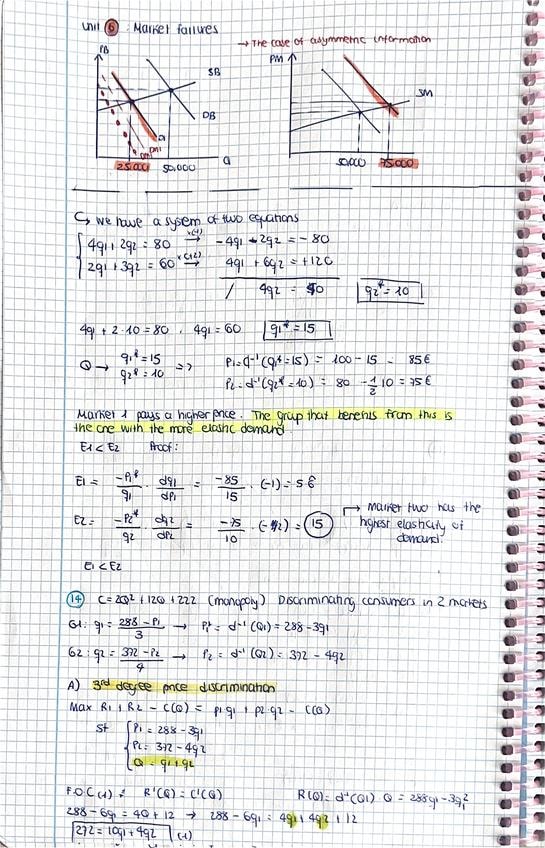 Unit 6: Market failures
→ The case of asymmetric information
PB
SB
DB
Q
25.000 50.000
PM
SM
50.000 75.000
↳ we have a system of two equations
4q1 + 2q2 = 80 x(-1) → -4q1 - 2q2 = -80
2q1 + 3q2 = 60 x(+2) → 4q1 + 6q2 = +120
/ 4q2 = 40 q2* = 10
4q1 + 2·10 = 80 . 4q1 = 60 q1* = 15
Q → q1* = 15 => P1 = d⁻¹(q1* = 15) = 100 - 15 = 85€
q2* = 10 P2 = d⁻¹(q2* = 10) = 80 - 1/2 10 = 75€
Market 1 pays a higher price. The group that benefits from this is
the one with the more elastic demand.
E1 < E2 Proof:
E1 = -P1*/q1 · dq1/dP1 = -85/15 · (-1) = 5.6
E2 = -P2*/q2 · dq2/dP2 = -75/10 · (-2) = 15
→ Market two has the
highest elasticity of
demand.
E1 < E2
14 C = 2Q² + 12Q + 222 (monopoly) Discriminating consumers in 2 markets
G1: q1 = 288 - P1/3 → P1 = d⁻¹(Q1) = 288 - 3q1
G2: q2 = 372 - P2/4 → P2 = d⁻¹(Q2) = 372 - 4q2
A) 3rd degree price discrimination
Max R1 + R2 - C(Q) = p1q1 + p2·q2 - C(Q)
st P1 = 288 - 3q1
P2 = 372 - 4q2
Q = q1 + q2
F.O.C (1) : R'(Q) = C'(Q) R(Q) = d⁻¹(Q1) · Q = 288q1 - 3q1²
288 - 6q1 = 4Q + 12 → 288 - 6q1 = 4q1 + 4q2 + 12
272 = 10q1 + 4q2 (1)